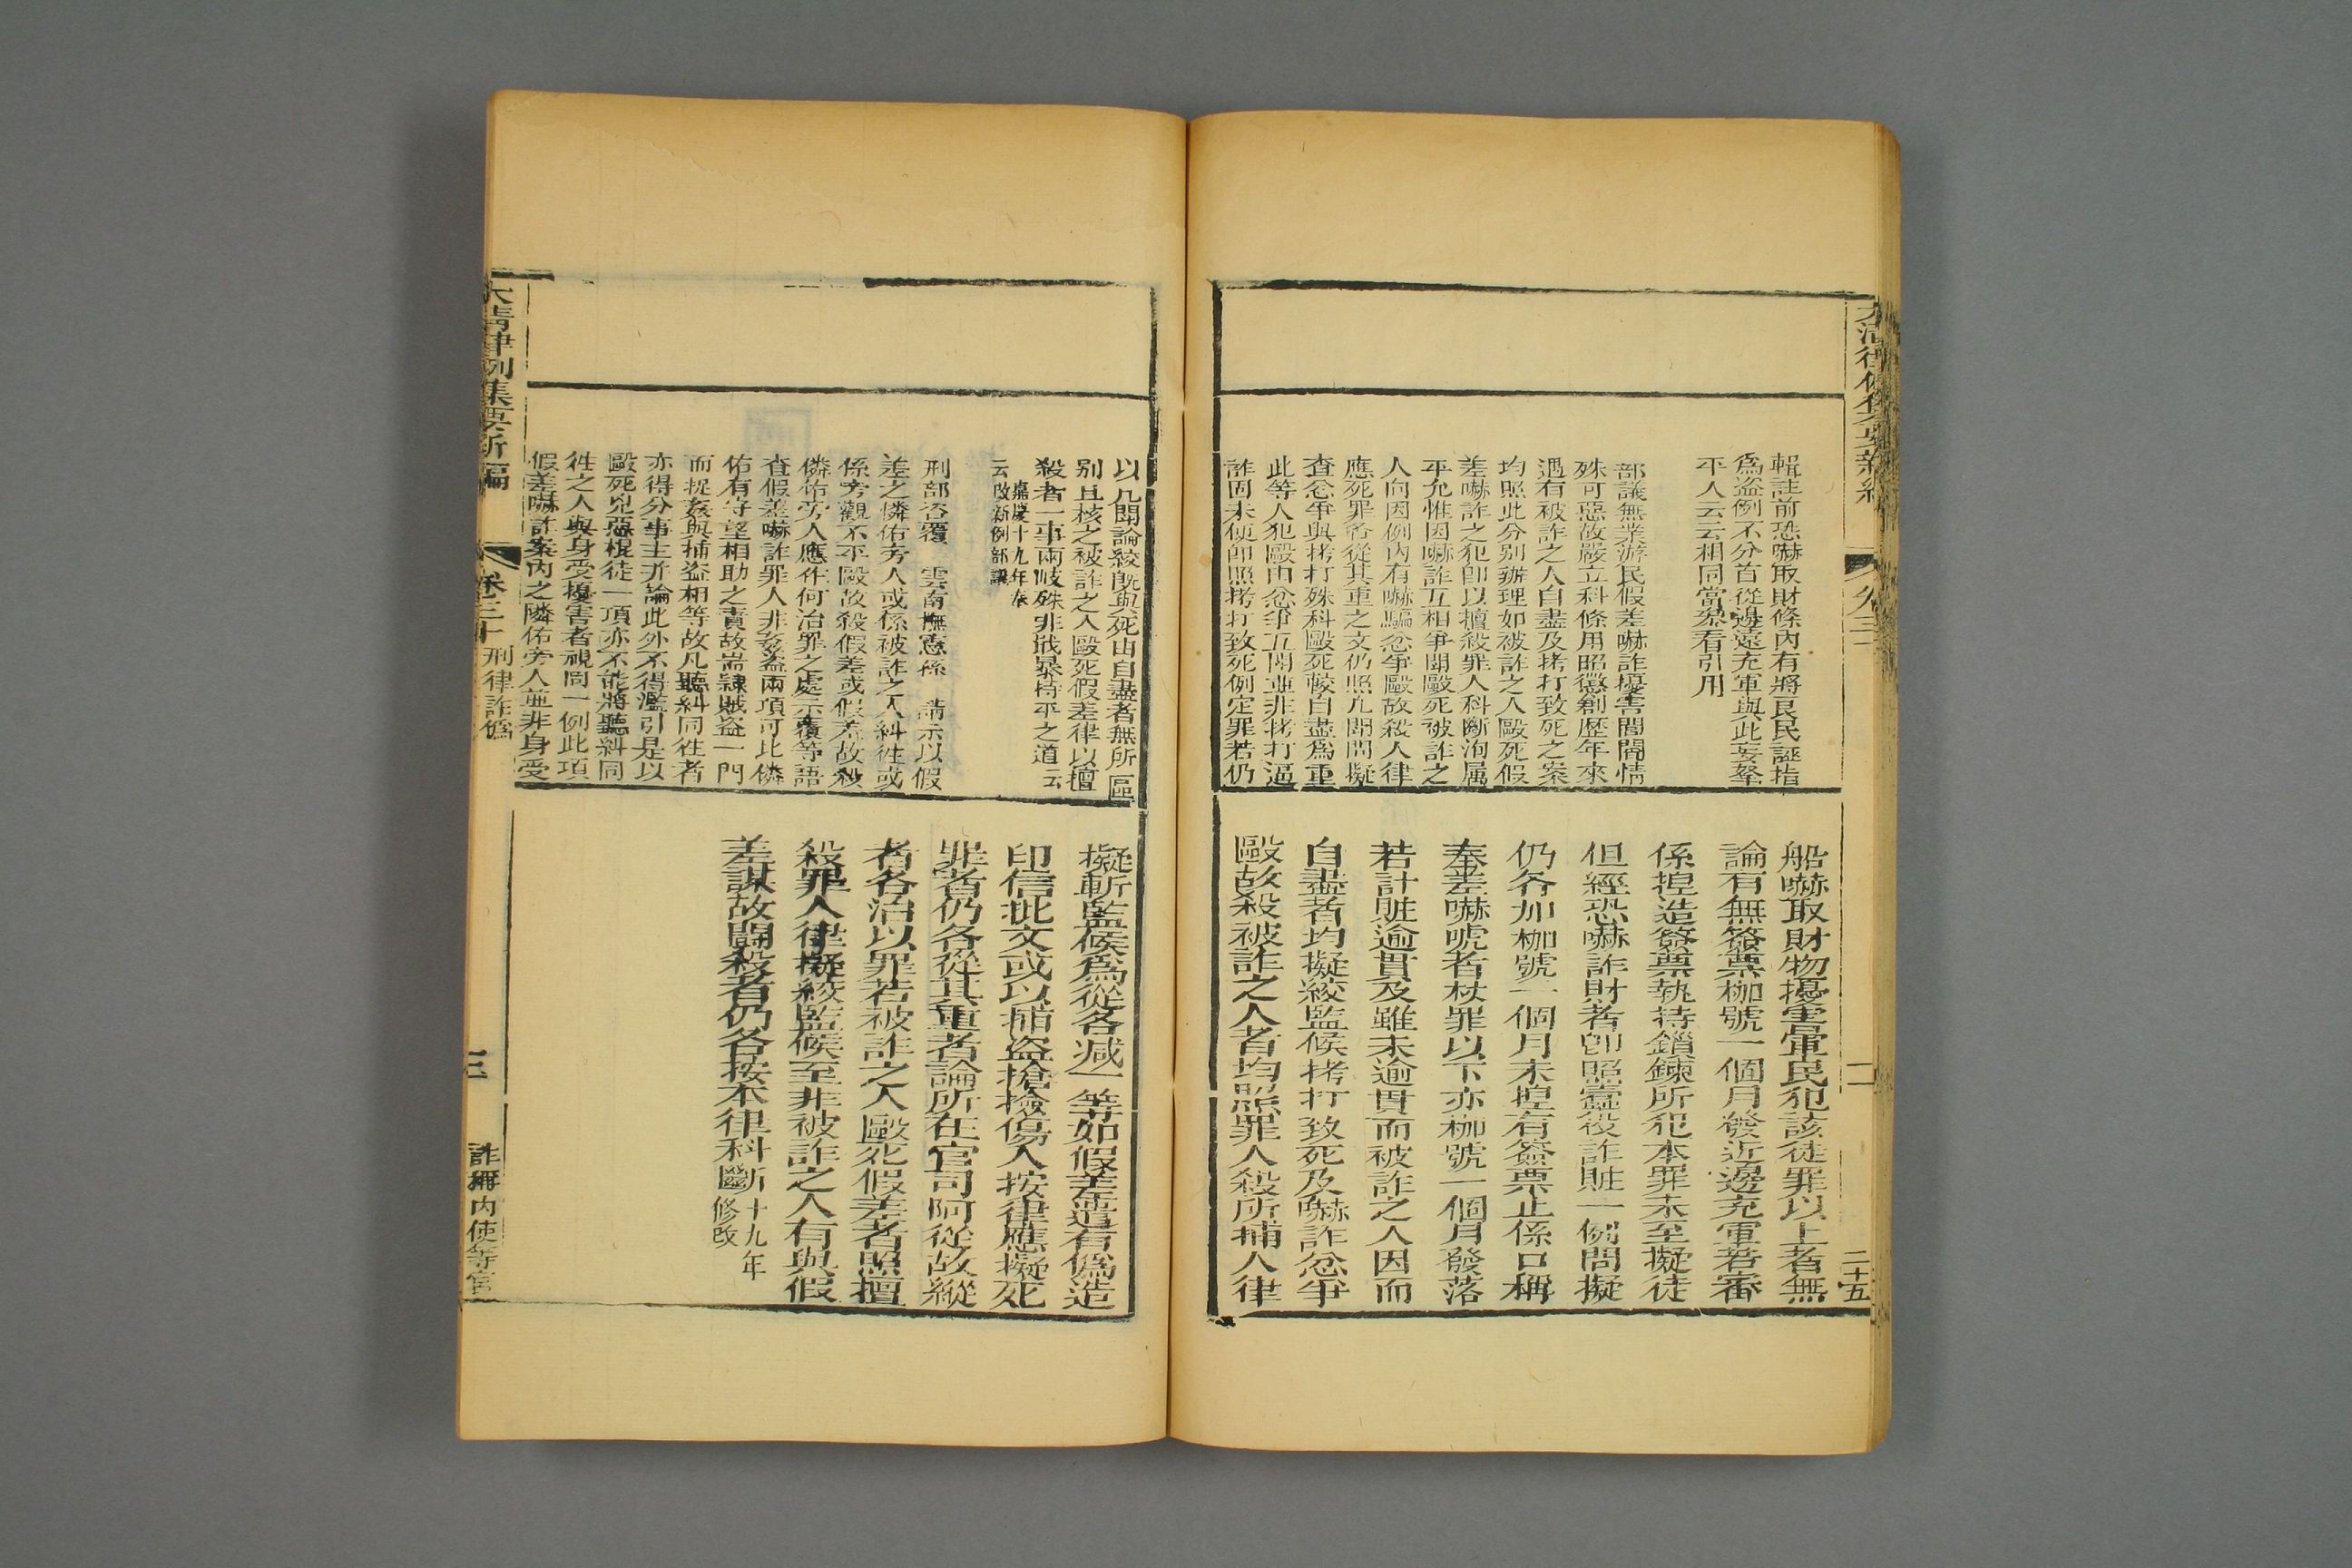 輯註前恐嚇取財條內有將良民誣指
爲盜例不分首從邊遠充軍與此妄拏
平人云云相同當參看引用
部議無業游民假差嚇詐擾害閭閻情
殊可惡故嚴立科條用昭懲創歷年來
遇有被詐之人自盡及拷打致死之案
均照此分别辦理如被詐之人毆死假
差嚇詐之犯卽以擅殺罪人科斷洵属
平允惟因嚇詐互相爭鬪毆死被詐之
人向因例內有嚇騙忿爭毆故殺人律
應死罪名從其重之文仍照凡鬪問擬
查忿爭與拷打殊科毆死較自盡爲重
此等人犯毆由忿爭互鬪並非拷打逼
詐固未便卽照拷打致死例定罪若仍
船嚇取財物擾害軍民犯該徒罪以上者無
論有無簽票枷號一個月發近邊充軍若審
係捏造簽票執持鎖鍊所犯本罪未至擬徒
但經恐嚇詐財者卽照蠹役詐贓一例問擬
仍各加枷號一個月未捏有簽票止係口稱
奉差嚇唬者杖罪以下亦枷號一個月發落
若計贓逾貫及雖未逾貫而被詐之人因而
自盡者均擬絞監候拷打致死及嚇詐忿爭
毆故殺被詐之人者均照罪人殺所捕人律
二十五
以凡鬪論絞旣與死由自盡者無所區
别且核之被詐之人毆死假差律以擅
殺者一事兩岐殊非戢暴持平之道云
云嘉慶十九年春改新例部議
刑部咨覆 雲南撫憲孫 請示以假
差之隣佑旁人或係被詐之人糾徃或
係旁觀不平毆故殺假差或假差故殺
隣佑旁人應作何治罪之處示覆等語
查假差嚇詐罪人非姦盜兩項可比隣
佑有守望相助之責故耑隸賊盜一門
而捉姦與捕盜相等故凡聽糾同徃者
亦得分事主并論此外不得濫引是以
毆死兇惡棍徒一項亦不能將聽糾同
徃之人與身受擾害者視同一例此項
假差嚇詐案內之隣佑旁人並非身受
擬斬監候爲從各減一等如假差遣有僞造
印信批文或以捕盜搶檢傷人按律應擬死
罪者仍各從其重者論所在官司阿從故縱
者各治以罪若被詐之人毆死假差者照擅
殺罪人律擬絞監候至非被詐之人有與假
差謀故鬪殺者仍各按本律科斷十九年修改
大清律例集要新編
卷三十
刑律詐僞
三
詐稱內使等官